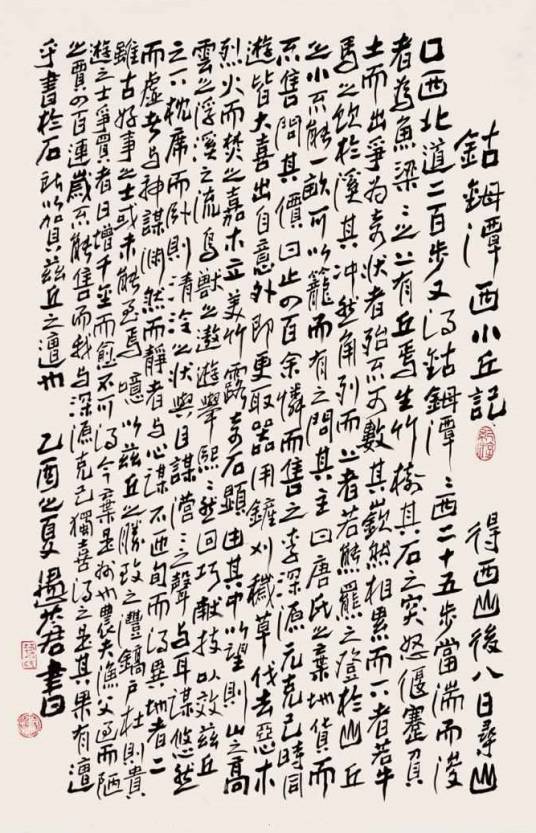 鈷鉧潭西小丘記 得西山後八日尋山
口西北道二百步又得鈷鉧潭〻西二十五步當湍而浚
者為魚梁〻之上有丘焉生竹樹其石之突怒偃蹇負
土而出爭為奇狀者殆不可數其嶔然相累而下者若牛
馬之飲於溪其沖然角列而上者若熊羆之登於山丘
之小不能一畝可以籠而有之問其主曰唐氏之棄地貨而
不售問其價曰止四百余憐而售之李深源元克己時同
遊皆大喜出自意外即更取器用鏟刈穢草伐去惡木
烈火而焚之嘉木立美竹露奇石顯由其中以望則山之高
雲之浮溪之流鳥獸之遨遊舉熙〻然回巧獻技以效茲丘
之下枕席而臥則清泠之狀與目謀瀯〻之聲与耳謀悠然
而虛者与神謀淵然而靜者与心謀不迊旬而得異地者二
雖古好事之士或未能至焉噫以茲丘之勝致之灃鎬戶杜則貴
遊之士爭買者日增千金而愈不可得今棄是州也農夫漁父過而陋
之賈四百連歲不能售而我与深源克己獨喜得之是其果有遭
乎書於石所以賀茲丘之遭也 乙酉之夏 書